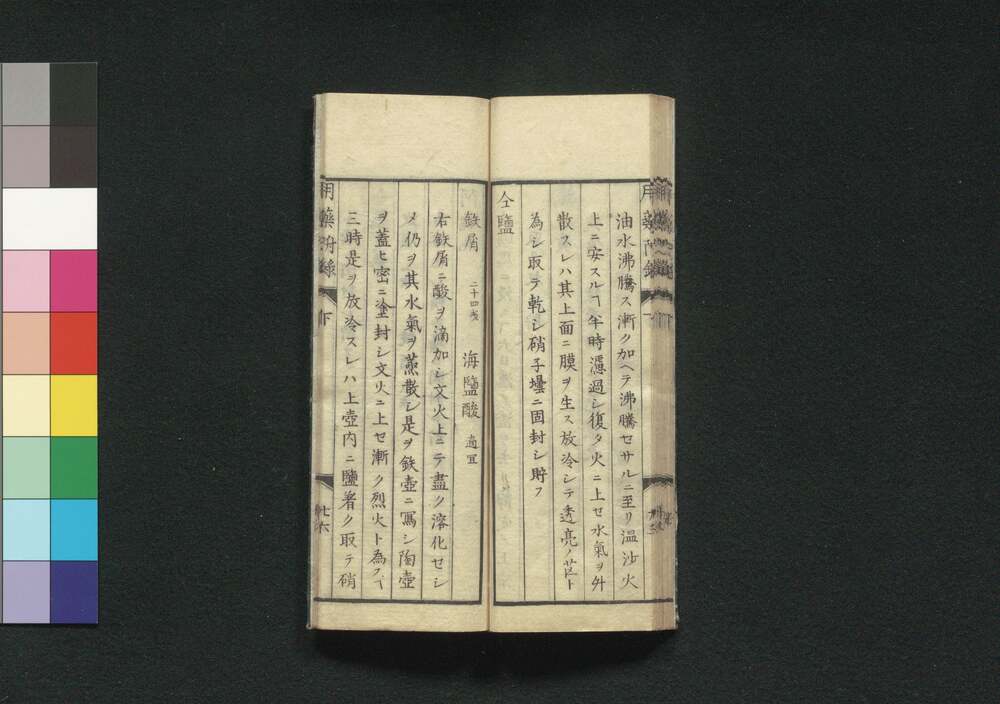 油水沸騰ス漸ク加ヘテ沸騰セサルニ至リ温沙火
上ニ安スルヿ半時濾過シ復タ火ニ上セ水氣ヲ舛
散スレハ其上面ニ膜ヲ生ス放冷シテ透亮ノ芒ト
為シ取テ乾シ硝子壜ニ固封シ貯フ
仝鹽
鉄屑 二十四戔 海鹽酸 適宜
右鉄屑ニ酸ヲ滴加シ文火上ニテ盡ク溶化セシ
メ仍ヲ其水氣ヲ蒸散シ是ヲ鉄壺ニ寫シ陶壺
ヲ蓋ヒ密ニ塗封シ文火ニ上セ漸ク烈火ト為スヿ
三時是ヲ放冷スレハ上壺内ニ鹽着ク取テ硝
用藥附録 下 七六